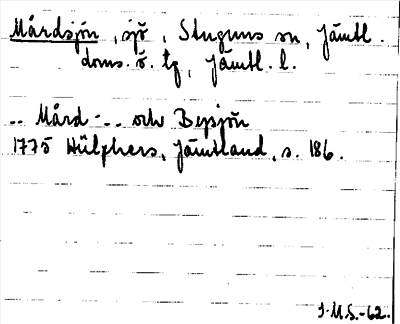 Mårdsjön, sjö, Stuguns sn, Jämtl.
doms. ö. tg, Jämtl. l.
.. Mård-.. och Bysjön
1775 Hülphers, Jämtland, s. 186.
J.M.S.-62.